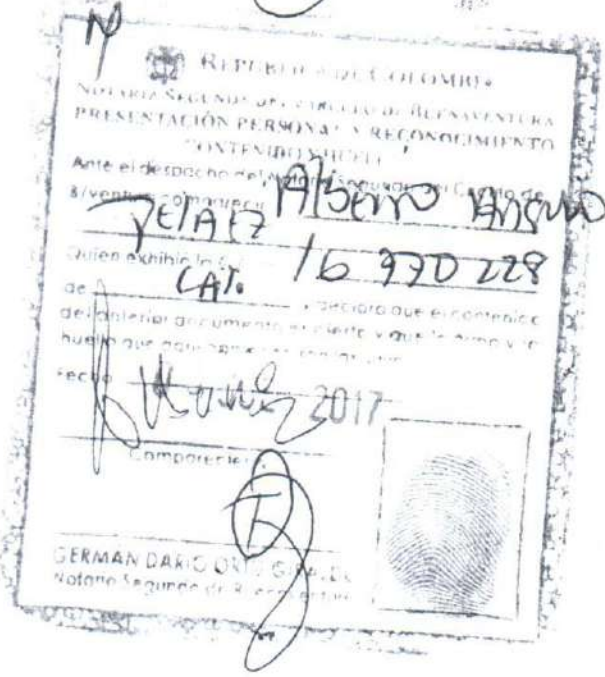 REPUBLICA DE COLOMBIA
NOTARIA SEGUNDA DEL CIRCULO DE BUENAVENTURA
PRESENTACIÓN PERSONAL Y RECONOCIMIENTO
CONTENIDO Y HUELLA
Ante el despacho del Notario Segundo del Circulo de
B/ventura compareció Alberto
PELAEZ
Quien exhibió la C.C. 16 770 228
de CALI y declaro que el contenido
del anterior documento es cierto y que la firma y la
huella que aqui aparecen son
Fecha 2017
Compareciente
GERMAN DARIO ORTIZ GIRALDO
Notario Segundo de Buenaventura